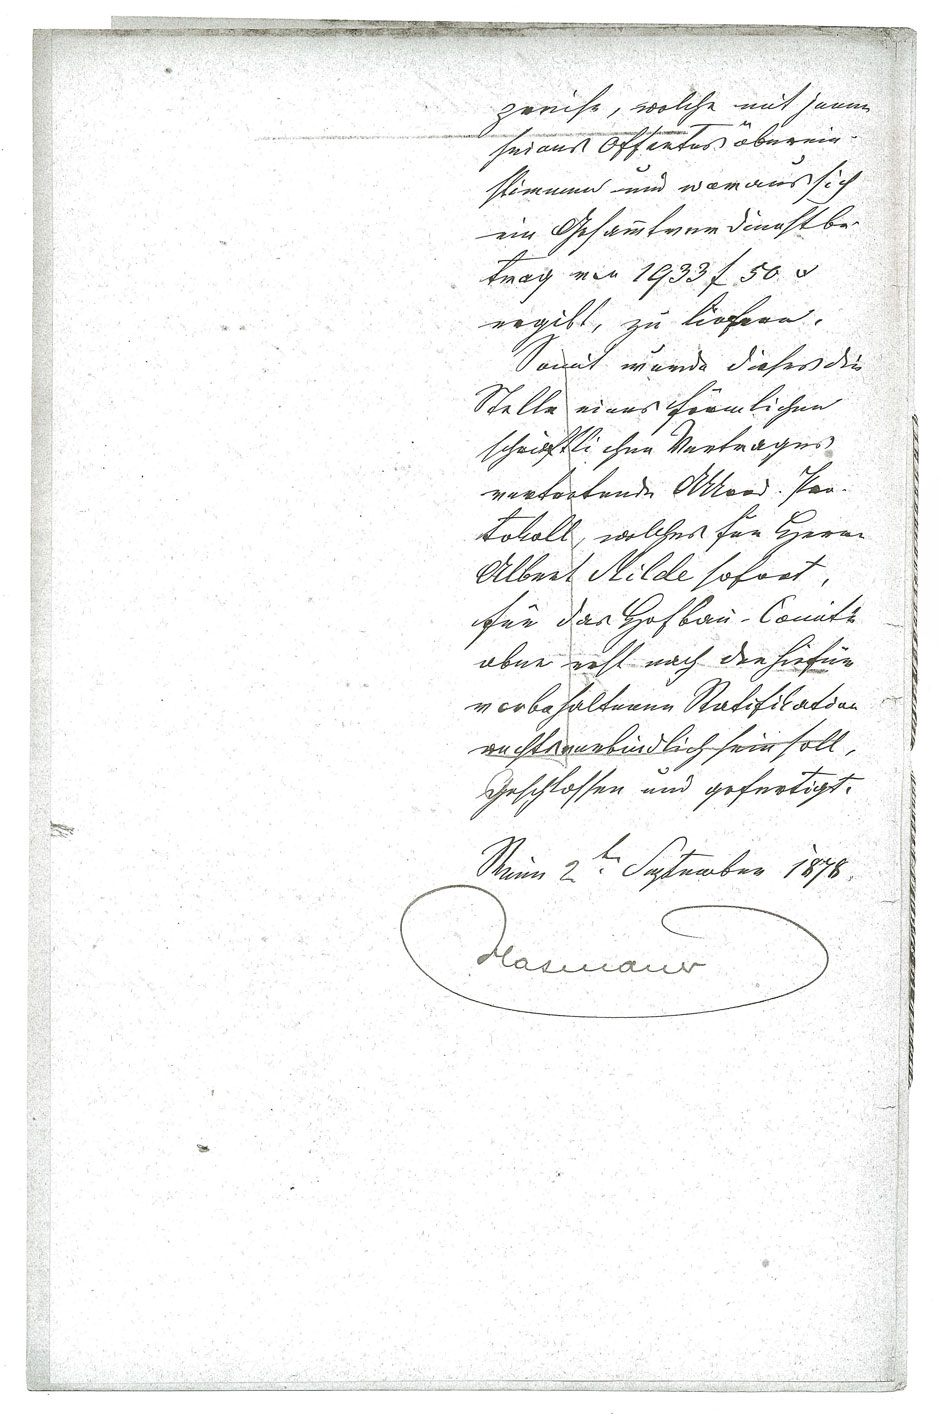 preise, welche mit jenen
seines Offertes überein-
stimmen und woraus sich
ein Gesam̅tverdienstbe-
trag von 1933 f 50 x
ergibt, zu liefern.
Somit wurde dieses die
Stelle eines förmlichen
schriftlichen Vertrages
vertretende Accord-Pro-
tokoll, welches für Herrn
Albert Milde sofort,
für das Hofbau-Comité
aber erst nach der hiefür
vorbehaltenen Ratifikation
rechtsverbindlich sein soll,
geschlossen und gefertigt.
Wien 2ten September 1878.
Hasenauer